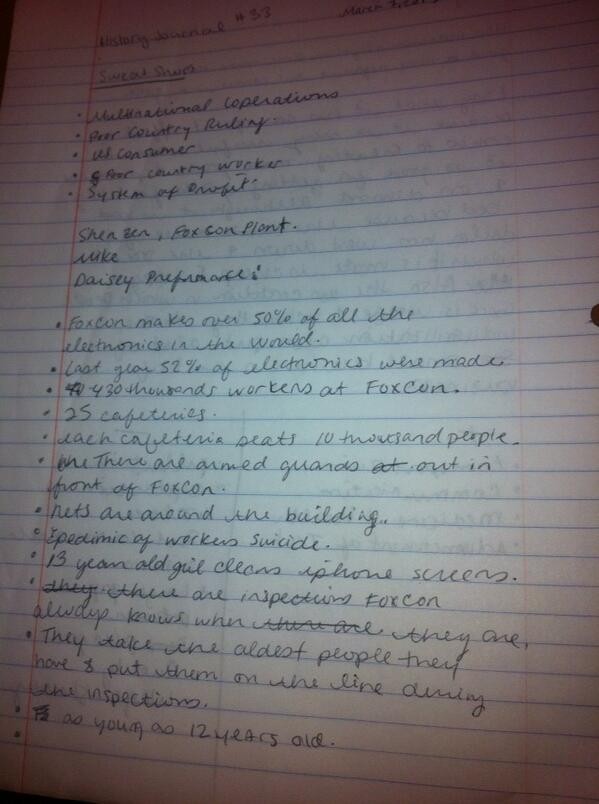 History Journal #33 March 7, 201
Sweat Shops
• Multinational Coperations
• Poor Country Ruling.
• US Consumer
• Poor country worker
• System of Profit.
Shenzen, FoxCon Plant.
Mike
Daisey Preformance:
• FoxCon makes over 50% of all the
electronics in the would.
• Last year 52% of electronics were made.
• 430 thousands workers at FoxCon.
• 25 cafeteries.
• each cafeteria seats 10 thousand people.
• There are armed guards at out in
front of FoxCon.
• nets are around the building.
• Epedimic of workers suicide.
• 13 year old girl cleans iphone screens.
• they there are inspections FoxCon
always knows when there are they are.
• They take the oldest people they
have & put them on the line during
the inspections.
• as young as 12 years old.
•